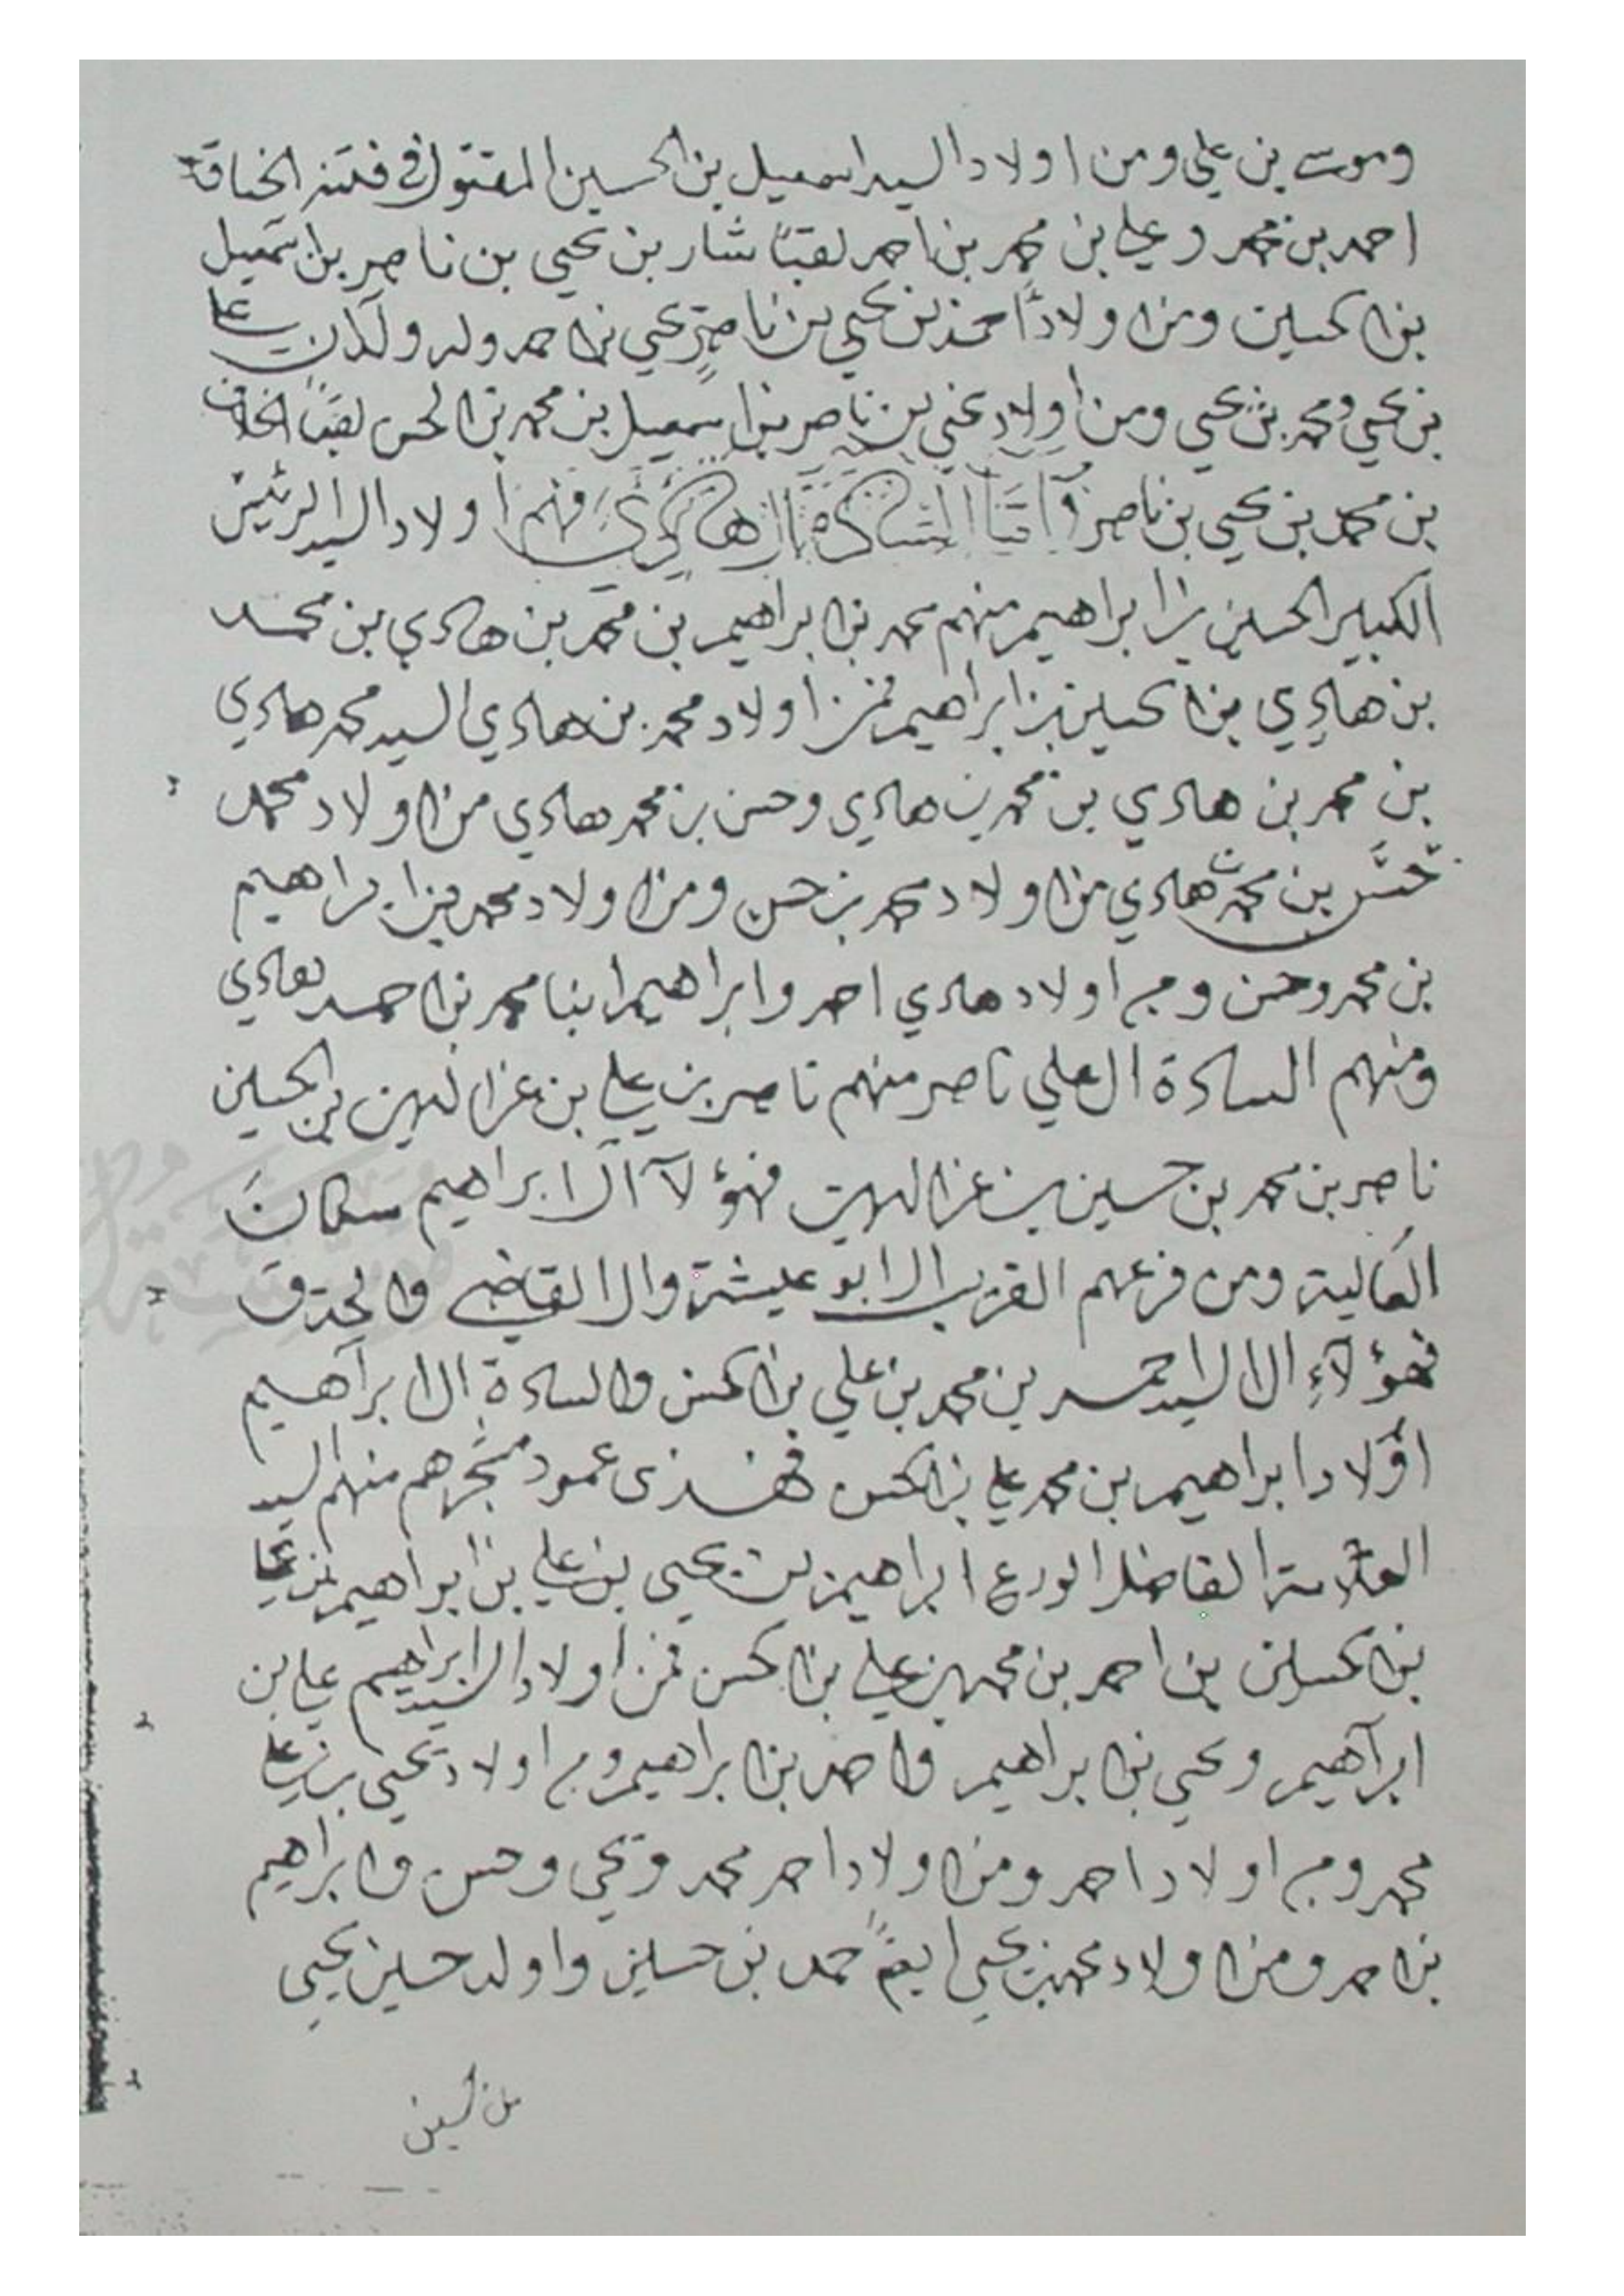 وموسى بن علي ومن اولاد السيد اسمعيل بن الحسين المقتول في فتنه
احمد بن محمد وعلي بن محمد بن احمد لقبًا شار بن يحيى بن ناصر بن اسمعيل
بن الحسين ومن اولاد احمد بن يحيى بن ناصر يحيى بن احمد وله ولدان علي
بن يحيى ومحمد بن يحيى ومن اولاد يحيى بن ناصر بن اسمعيل بن محمد بن الحسن لقبًا
بن محمد بن يحيى بن ناصر وأمّا السادة ال هادي فمنهم اولاد السيد الرئيس
الكبير الحسين بن ابراهيم منهم محمد بن ابراهيم بن محمد بن هادي بن محمد
بن هادي بن الحسين بن ابراهيم فمن اولاد محمد بن هادي السيد محمد هادي
بن محمد بن هادي بن محمد بن هادي وحسن بن محمد هادي من اولاد محمد
حسن بن محمد هادي من اولاد محمد بن حسن ومن اولاد محمد بن ابراهيم
بن محمد وحسن ومن اولاد هادي احمد وابراهيم ابنا محمد بن احمد هادي
ومنهم السادة ال علي ناصر منهم ناصر بن علي بن عز الدين بن الحسين
ناصر بن محمد بن حسين بن عز الدين فهؤلآ آل ابراهيم سكان
العالية ومن فرعهم القريب ال ابو عيشة وال القاضي
فهؤلآء ال السيد احمد بن محمد بن علي بن الحسن والسادة ال ابراهيم
اولاد ابراهيم بن محمد علي بن الحسن فهذى عمود مشجرهم منهم السيد
العلامة الفاضل الورع ابراهيم بن يحيى بن علي بن ابراهيم بن علي
بن الحسين بن احمد بن محمد بن علي بن الحسن فمن اولاد السيد ابراهيم علي بن
ابراهيم ويحيى بن ابراهيم واحمد بن ابراهيم ومن اولاد يحيى بن علي
محمد ومن اولاد احمد ومن اولاد احمد محمد ويحيى وحسن وابراهيم
بن احمد ومن اولاد محمد بن يحيى ايضًا حمد بن حسين واولد حسين يحيى
بن الحسين